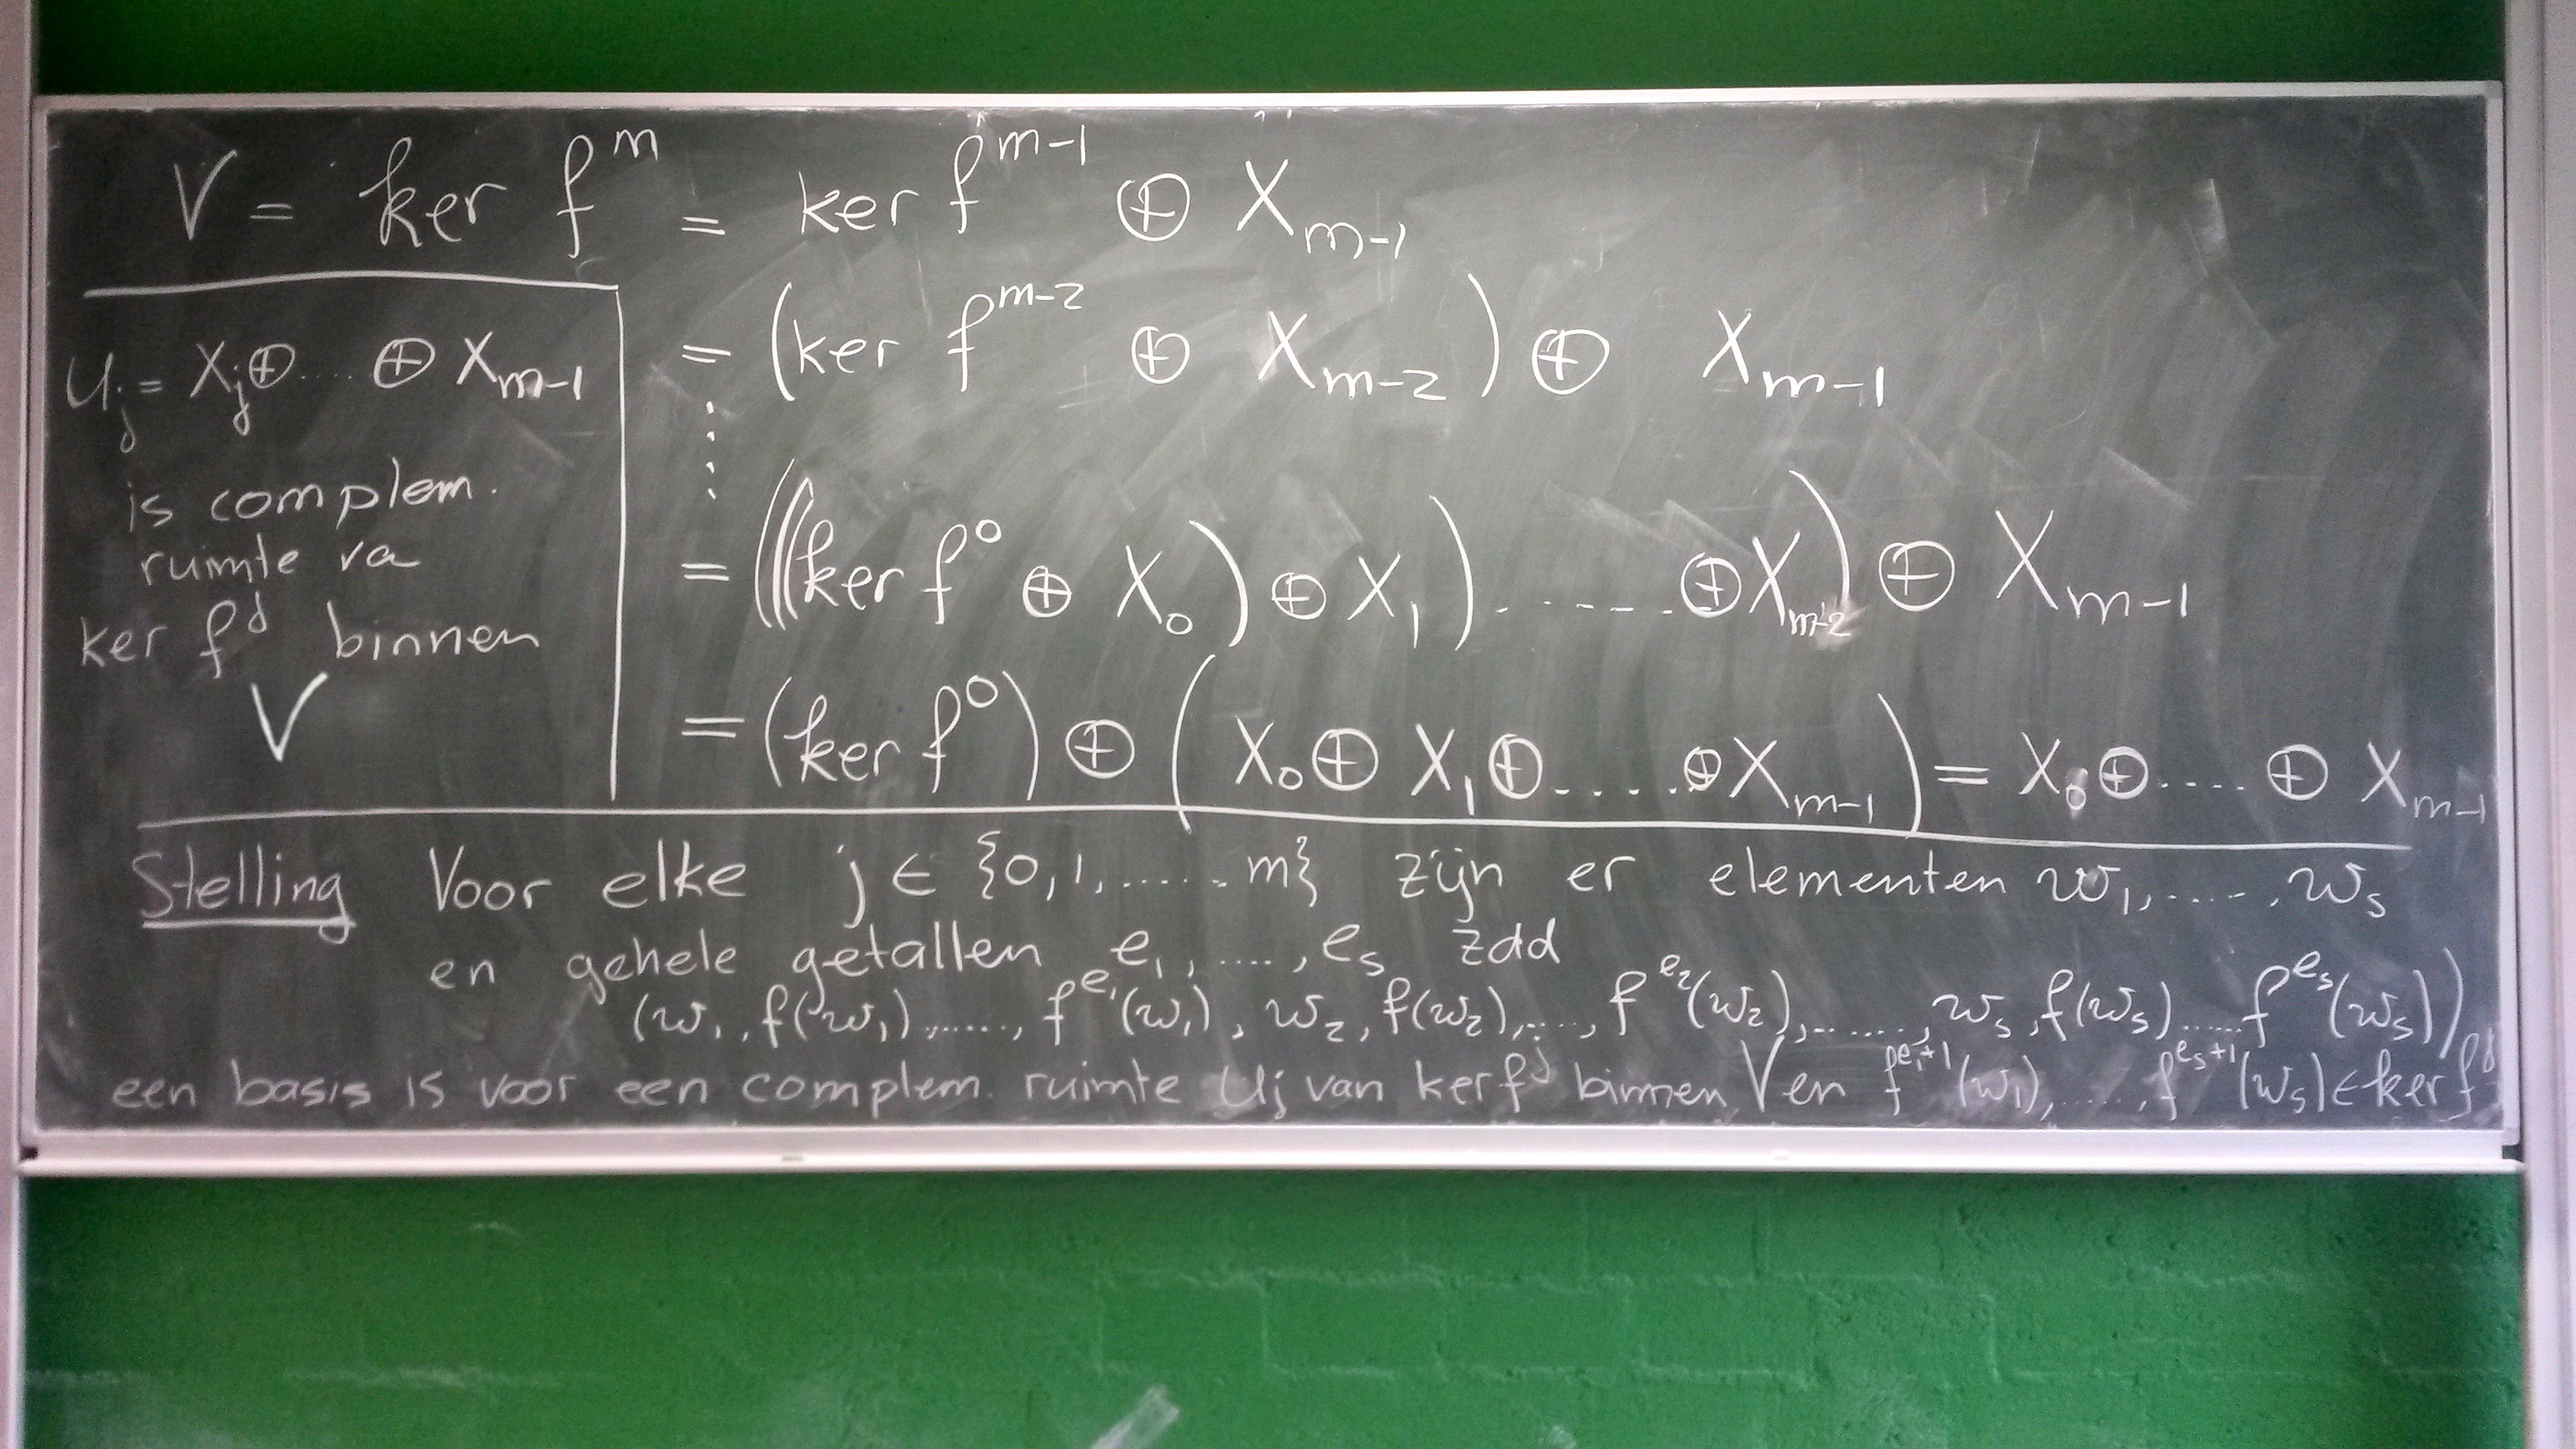 V = ker f^m = ker f^{m-1} ⊕ X_{m-1}
= (ker f^{m-2} ⊕ X_{m-2}) ⊕ X_{m-1}
⋮
= (((ker f^0 ⊕ X_0) ⊕ X_1) ...... ⊕ X_{m-2}) ⊕ X_{m-1}
= (ker f^0) ⊕ (X_0 ⊕ X_1 ⊕ ..... ⊕ X_{m-1}) = X_0 ⊕ .... ⊕ X_{m-1}
U_j = X_j ⊕ .... ⊕ X_{m-1}
is complem.
ruimte va
ker f^j binnen
V
Stelling Voor elke j ∈ {0, 1, ...... m} zijn er elementen w_1, ....., w_s
en gehele getallen e_1, ...., e_s zdd
(w_1, f(w_1), ....., f^{e_1}(w_1), w_2, f(w_2), ..., f^{e_2}(w_2), ......, w_s, f(w_s) ..... f^{e_s}(w_s))
een basis is voor een complem. ruimte U_j van ker f^j binnen V en f^{e_1+1}(w_1), ....., f^{e_s+1}(w_s) ∈ ker f^j